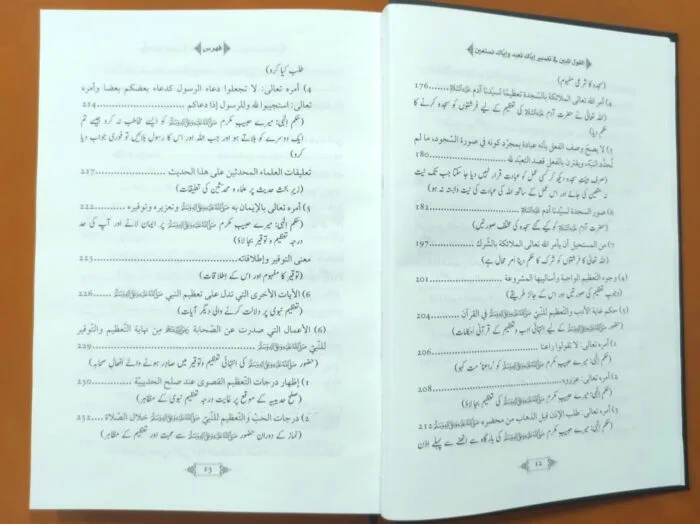 القول المبين في تفسير إياك نعبد وإياك نستعين
(سجدہ کا شرعی مفہوم)
٤) أمر الله تعالى الملائكة بالسجدة تعظيمًا لسيّدنا آدم عَلَيْهِ السَّلَام ............ 176
(اللہ تعالیٰ نے حضرت آدم عَلَيْهِ السَّلَام کی تعظیم کے لیے فرشتوں کو سجدہ کرنے کا
حکم دیا)
٥) لا يصحّ وصف الفعل بأنه عبادة بمجرّد كونه في صورة السّجود، ما لم
تُحدَّد النيّة، ويقترن بالفعل قصد التعبّد لله ............ 180
(صرف ہیئتِ سجدہ دیکھ کر کسی عمل کو عبادت قرار نہیں دیا جا سکتا جب تک نیت
متعین نہ کی جائے اور اس عمل کے ساتھ اللہ کی عبادت کی نیت وابستہ نہ ہو)
٦) صور السجدة لسيّدنا آدم عَلَيْهِ السَّلَام ............ 182
(حضرت آدم عَلَيْهِ السَّلَام کو کیے گئے سجدہ کی مختلف صورتیں)
٧) من المستحيل أن يأمر الله تعالى الملائكة بالشّرك ............ 197
(اللہ تعالیٰ کا فرشتوں کو شرک کا حکم دینا امرِ محال ہے)
(٤) وجوه التّعظيم الواجبة وأساليبها المشروعة ............ 201
(وجوبِ تعظیم کی صورتیں اور اس کے جائز طریقے)
(٥) حكم غاية الأدب والتّعظيم للنّبيّ ﷺ في القرآن ............ 204
(حضور ﷺ کے لیے انتہائی ادب و تعظیم کے قرآنی احکامات)
١) أمره تعالى: لا تقولوا راعنا ............ 206
(حکمِ الٰہی: میرے حبیبِ مکرم ﷺ کو 'راعنا' مت کہو)
٢) أمره تعالى: عزّروه ............ 208
(حکمِ الٰہی: میرے حبیبِ مکرم ﷺ کی تعظیم بجا لاؤ)
٣) أمره تعالى: طلب الإذن قبل الذهاب من محضره ﷺ 212
(حکمِ الٰہی: میرے حبیبِ مکرم ﷺ کی بارگاہ سے اٹھنے سے پہلے اِذن
12
فهرس
طلب کیا کرو)
٤) أمره تعالى: لا تجعلوا دعاء الرسول كدعاء بعضكم بعضا وأمره
تعالى: استجيبوا لله وللرسول إذا دعاكم ............ 214
(حکمِ الٰہی: میرے حبیبِ مکرم ﷺ کو ایسے مخاطب نہ کرو جیسے تم
ایک دوسرے کو بلاتے ہو اور جب اللہ اور اس کا رسول بلائیں تو فوری جواب دیا
کرو)
تعليقات العلماء المحدثين على هذا الحديث ............ 217
(زیرِ بحث حدیث پر علماء و محدثین کی تعلیقات)
٥) أمره تعالى بالإيمان به ﷺ وتعزيره وتوقيره ............ 222
(حکمِ الٰہی: میرے حبیبِ مکرم ﷺ پر ایمان لانے اور آپ کی حد
درجہ تعظیم و توقیر بجا لاؤ)
معنى التوقير وإطلاقاته ............ 223
(توقیر کا مفہوم اور اس کے اطلاقات)
٦) الآيات الأخرى التي تدل على تعظيم النبي ﷺ ............ 226
(تعظیمِ نبوی پر دلالت کرنے والی دیگر آیات)
(٦) الأعمال التي صدرت عن الصّحابة رضي الله عنهم من نهاية التّعظيم والتّوقير
للنّبيّ ﷺ ............ 229
(حضور ﷺ کی انتہائی تعظیم و توقیر میں صادر ہونے والے افعالِ صحابہ)
١) إظهار درجات التّعظيم القصوى عند صلح الحديبيّة ............ 230
(صلحِ حدیبیہ کے موقع پر غایت درجہ تعظیمِ نبوی کے مظاہر)
٢) درجات الحبّ والتّعظيم للنّبيّ ﷺ خلال الصّلاة ............ 232
(نماز کے دوران حضور ﷺ سے محبت اور تعظیم کے مظاہر)
13